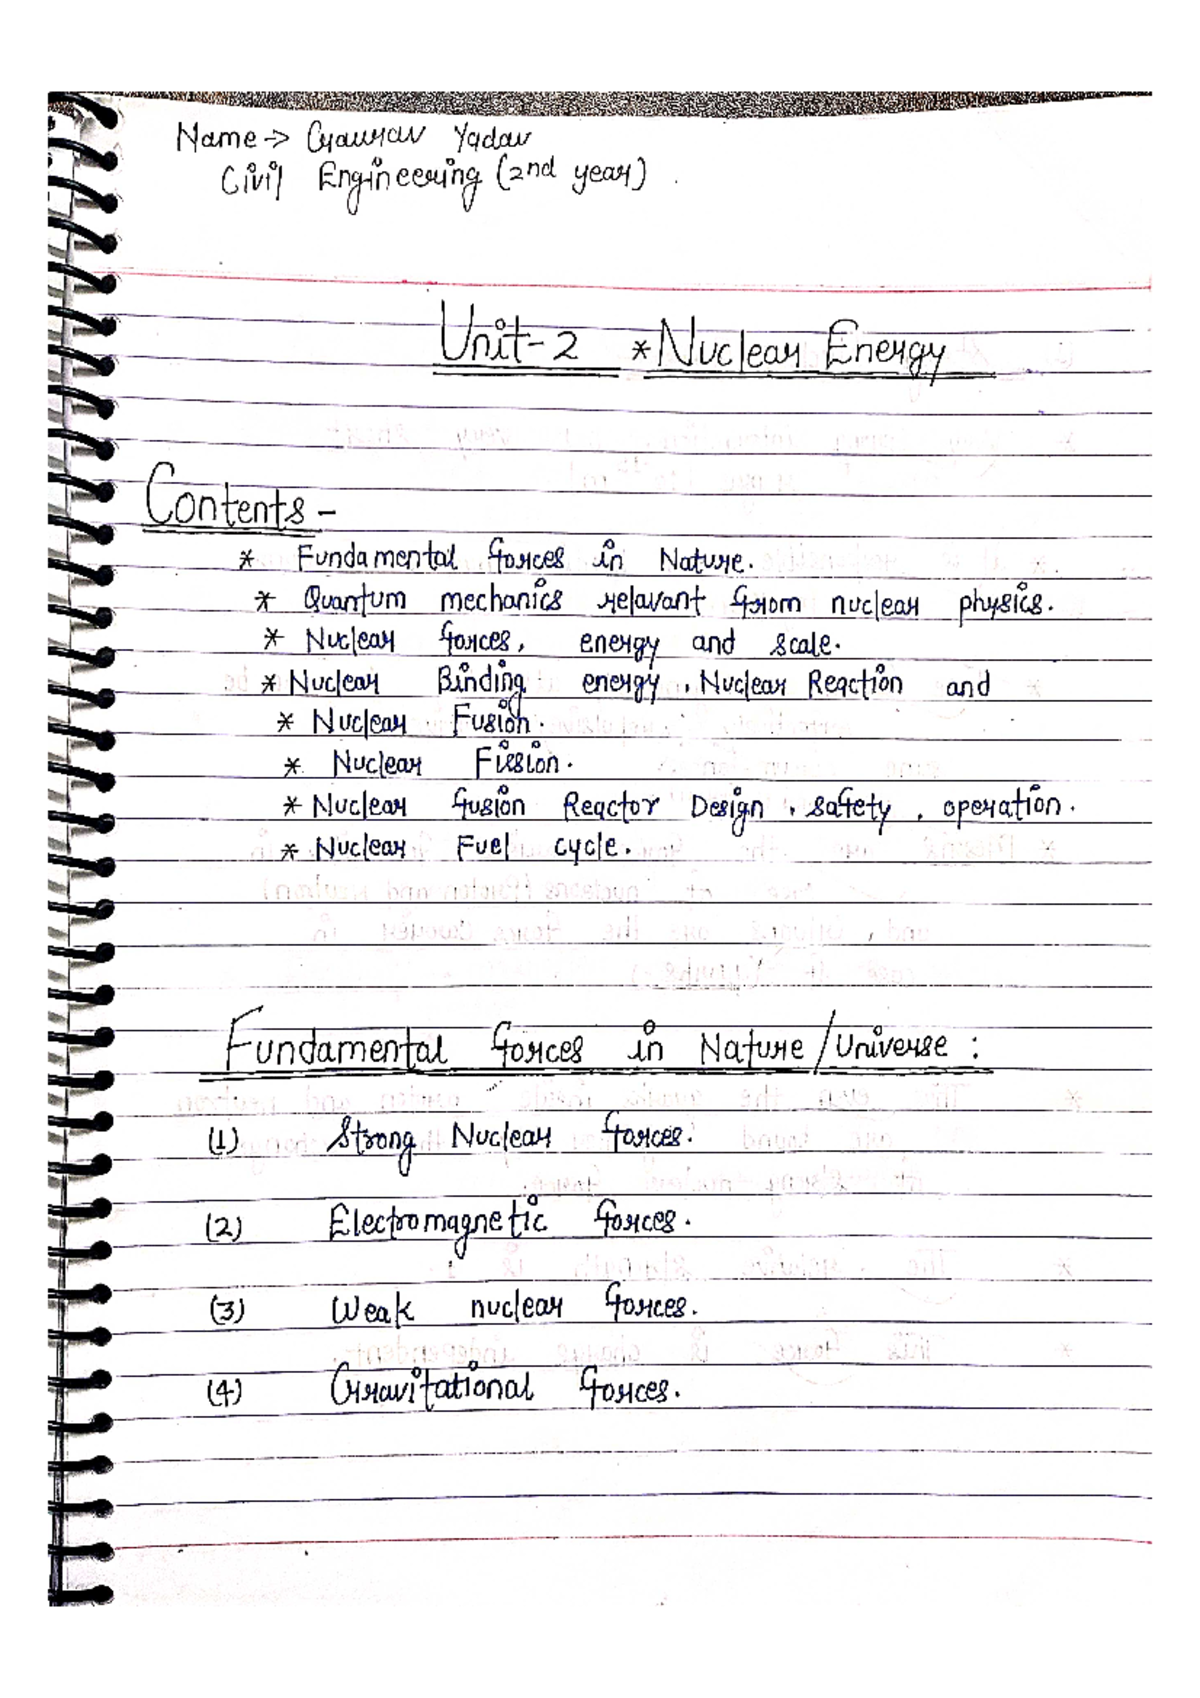 Name → Gaurav Yadav
Civil Engineering (2nd year)
Unit-2 * Nuclear Energy
Contents -
* Fundamental forces in Nature.
* Quantum mechanics relavant from nuclear physics.
* Nuclear forces, energy and scale.
* Nuclear Binding energy, Nuclear Reaction and
* Nuclear Fusion.
* Nuclear Fission.
* Nuclear fusion Reactor Design, safety, operation.
* Nuclear Fuel cycle.
Fundamental forces in Nature/Universe :
(1) Strong Nuclear forces.
(2) Electromagnetic forces.
(3) Weak nuclear forces.
(4) Gravitational forces.